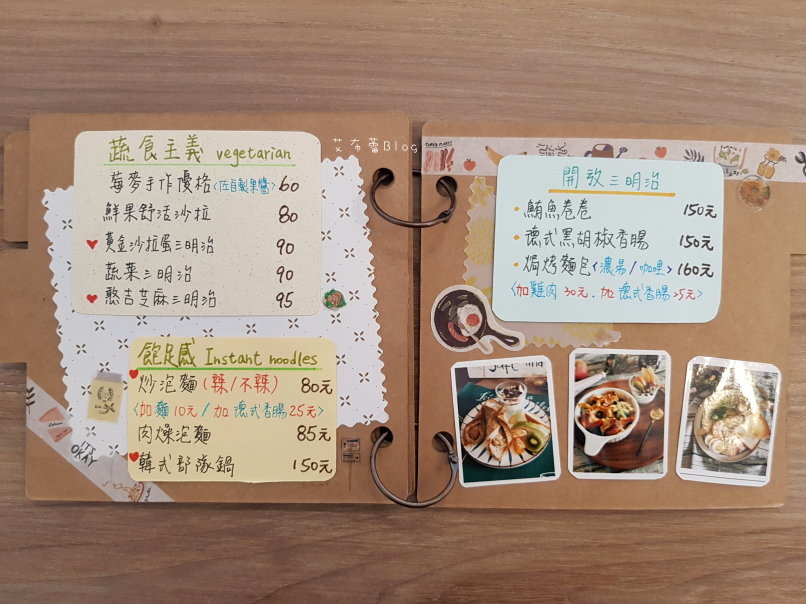 艾布蕾Blog
蔬食主義 vegetarian
莓麥手作優格〈佐自製果醬〉60
鮮果舒活沙拉 80
黃金沙拉蛋三明治 90
蔬菜三明治 90
憨吉芝麻三明治 95
飽足感 Instant noodles
炒泡麵(辣/不辣) 80元
〈加麵10元/加德式香腸25元〉
肉燥泡麵 85元
韓式部隊鍋 150元
IT'S OKAY
開放三明治
鮪魚卷卷 150元
德式黑胡椒香腸 150元
焗烤麵包〈濃湯/咖哩〉160元
〈加雞肉30元.加德式香腸25元〉